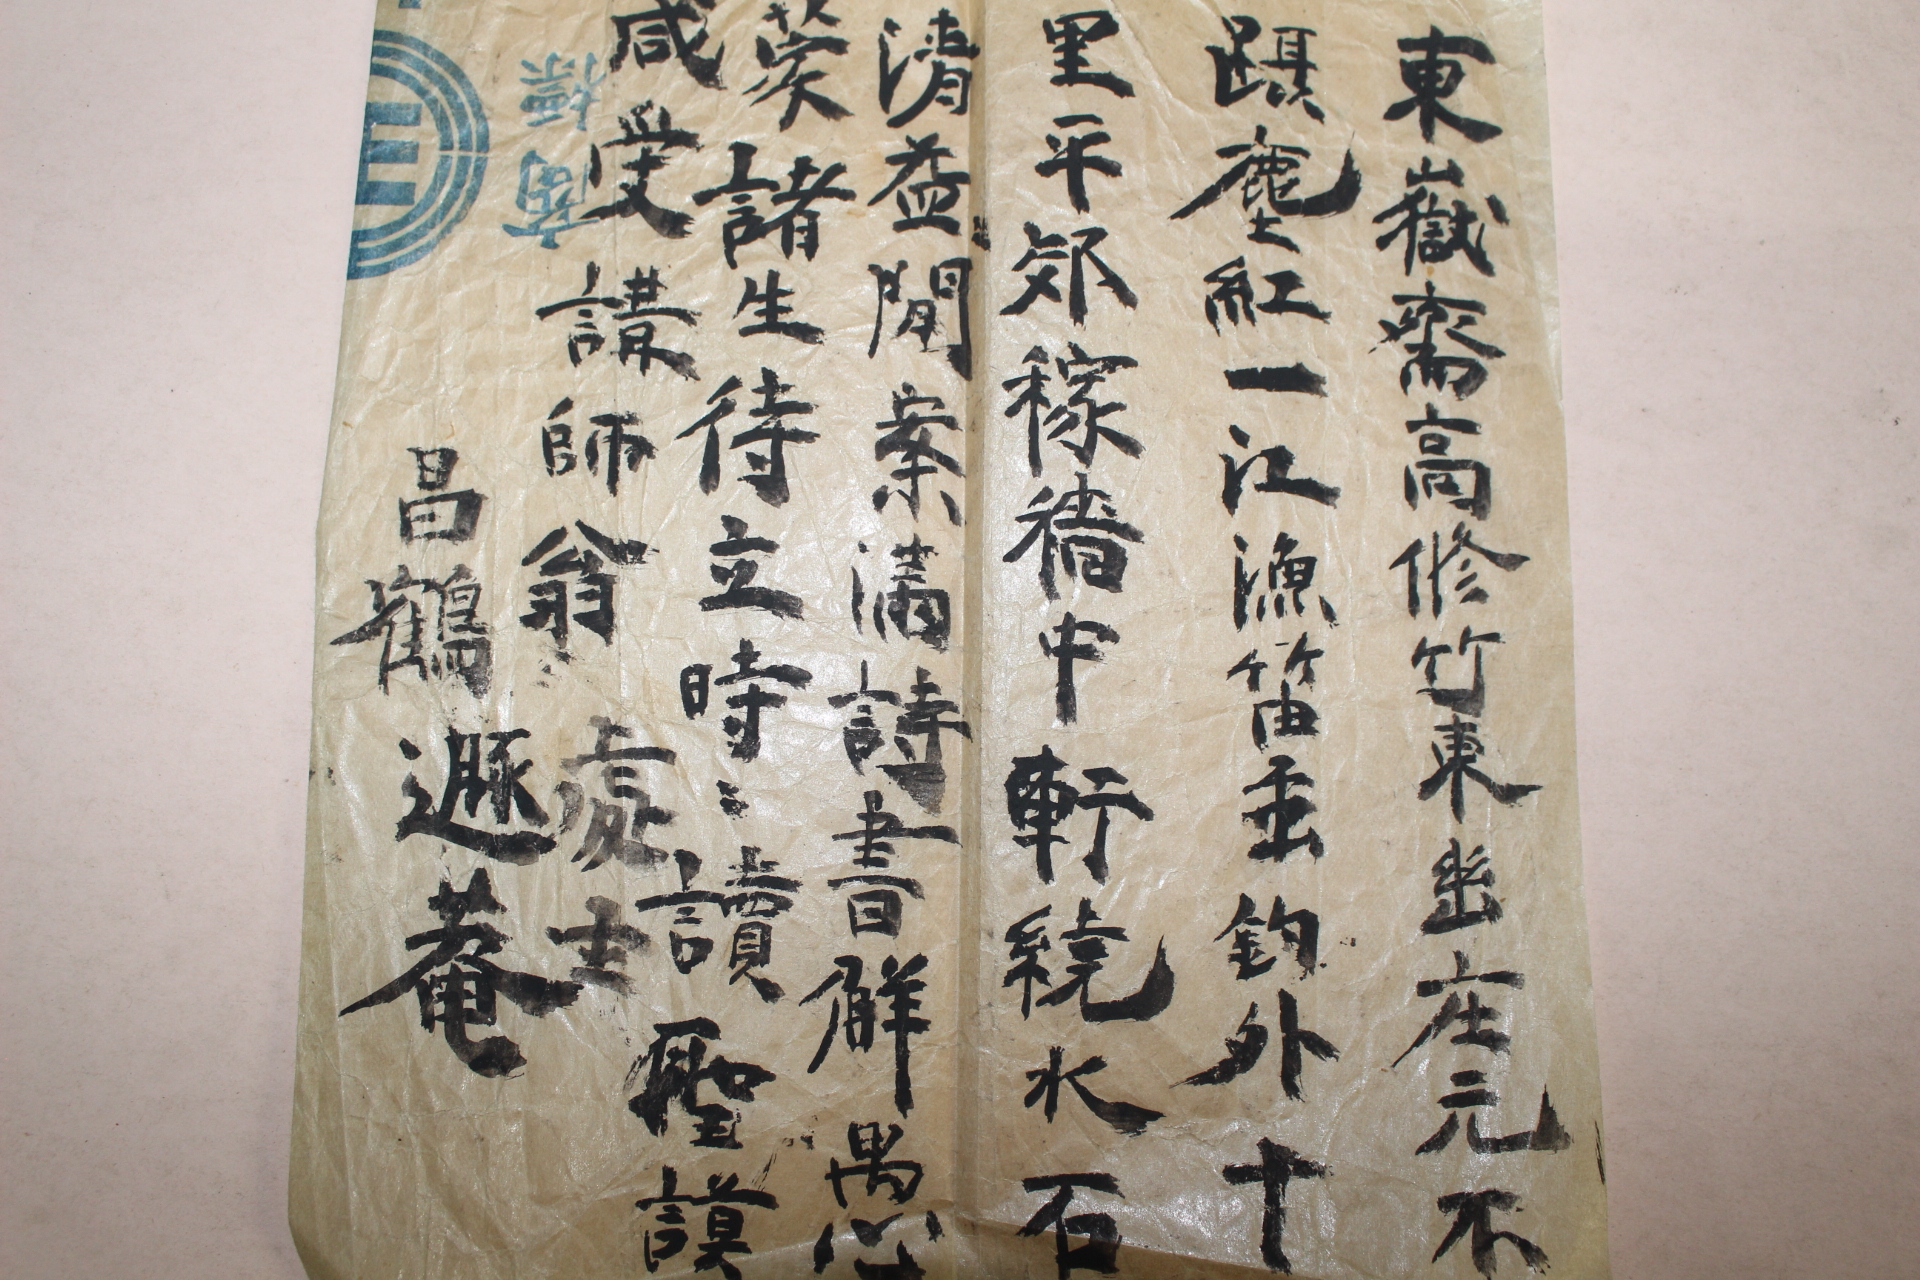 東嶽齋高修竹東幽庄元不
躡塵紅一江漁笛垂釣外十
里平郊稼穡中軒繞水石
清益閒案滿詩書解愚
蒙諸生待立時〻讀聖謨
咸受講師翁 處士
昌鶴遯菴